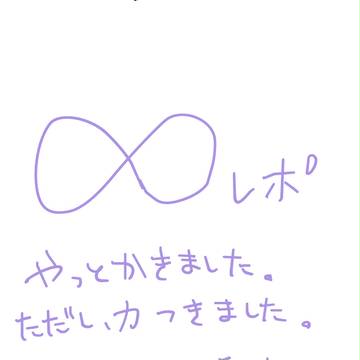 ∞レポ
やっとかきました。
ただし、力つきました。